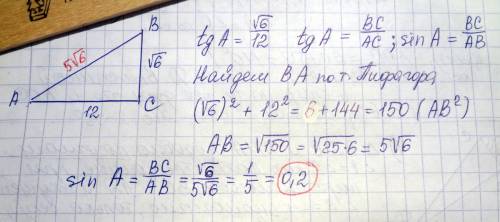 B
5√6
√6
A
12
C
tg A = √6/12 tg A = BC/AC ; sin A = BC/AB
Найдем BA по т. Пифагора
(√6)² + 12² = 6 + 144 = 150 (AB²)
AB = √150 = √25·6 = 5√6
sin A = BC/AB = √6/5√6 = 1/5 = 0,2